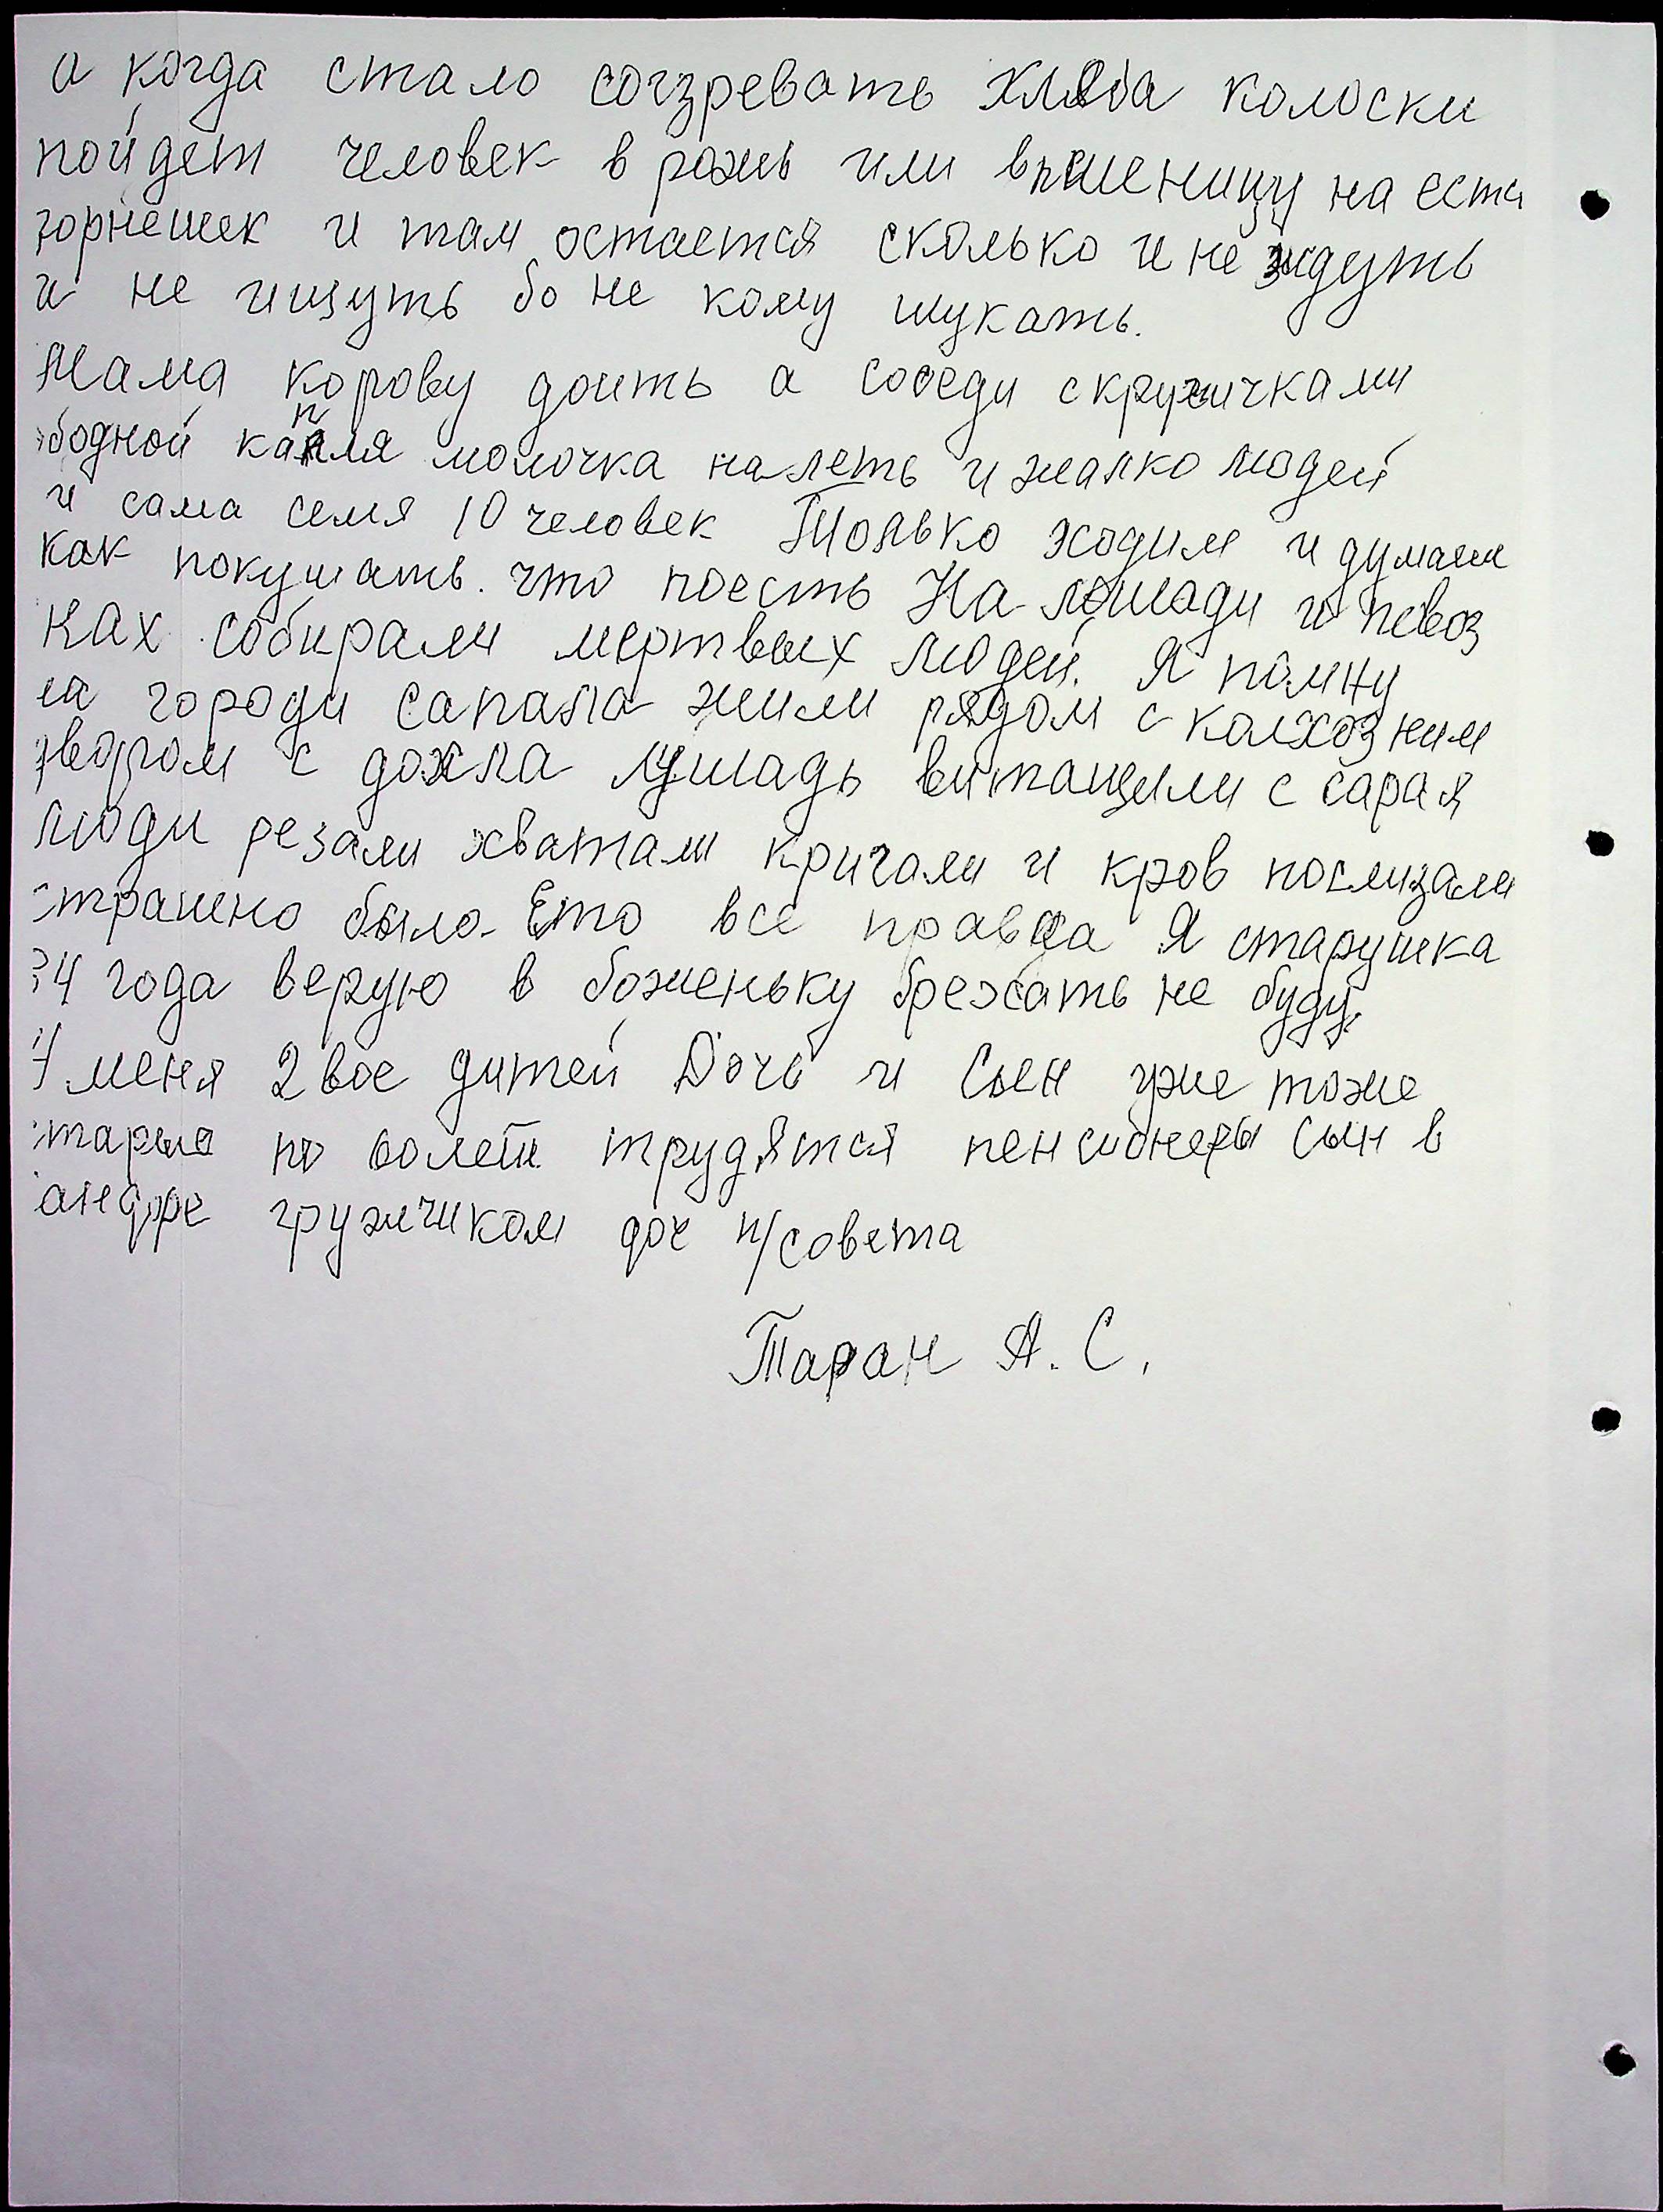 а когда стало созревать хляба колоски
пойдет человек в рожь или впшеницу на еста
зорнешек и там остается сколько и не ждуть
и не ищуть бо не кому шукать.
Мама корову доить а соседи скружичками
бодной капля молочка налеть и жалко людей
и сама семя 10 человек Только ходим и думаем
как покушать. что поесть На лошади и певоз
ках собирали мертвых людей. Я помну
на городи сапала жили рядом с колхозним
двором с дохла лушадь витащили с сарая
люди резали хватали кричали и кров послизали
страшно было. Ето все правда Я старушка
34 года верую в боженьку брехать не буду.
У меня 2вое дитей Дочь и Сын уже тоже
старые по трудятся пенсионеры Сын в
анфре гружчиком доч п/совета
Таран А. С.